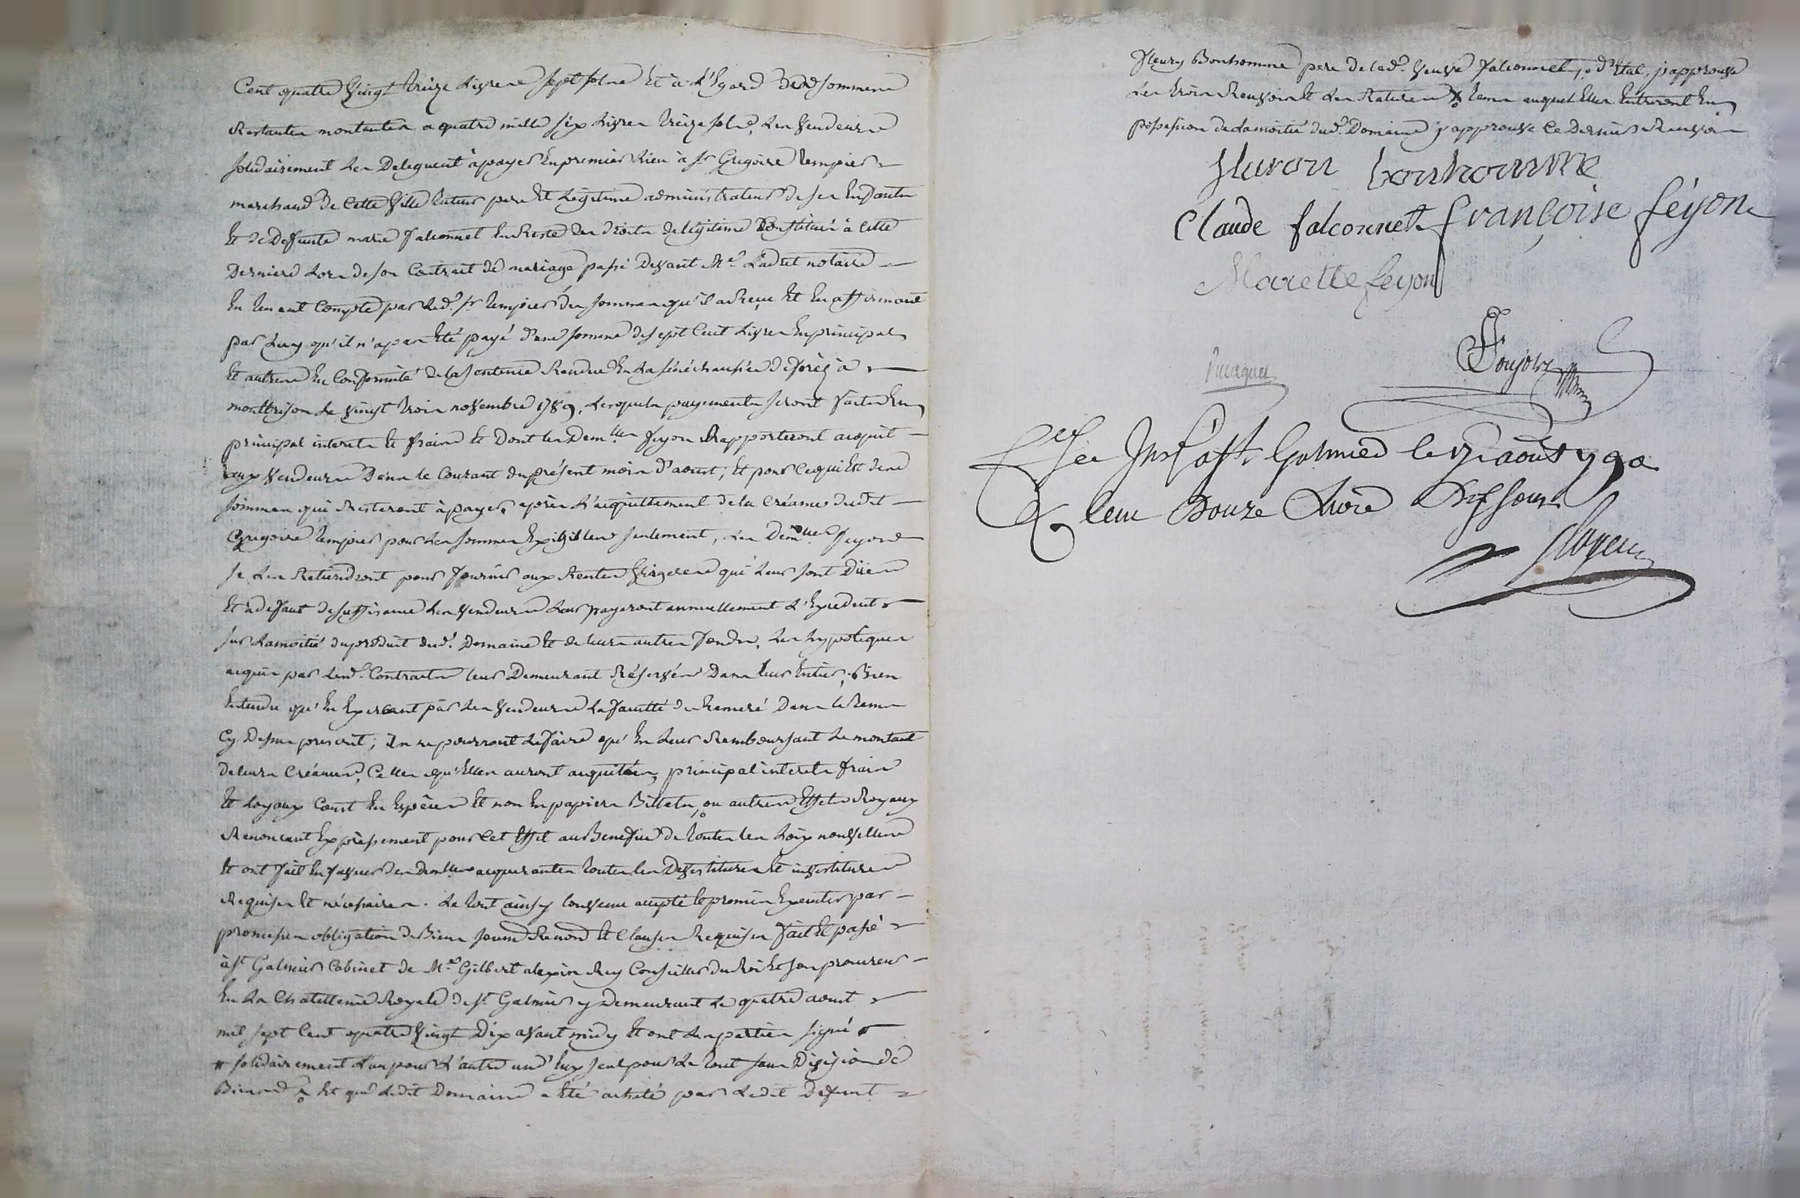 Cent quatre Vingt treize Livres sept sols Et à L'Egard des sommes
Restantes montantes a quatre mille six Livres treize sols, Les Vendeurs
solidairement Les Deleguent à payer En premier Lieu à sr Gregoire Tempier
marchand de Cette Ville tuteur pere Et Legitime administrateur de ses Enfants
Et de Defunte marie falconnet En Reste des droits de Legitime Constitués à Cette
Derniere Lors de son Contrat de mariage passé Devant Me notaire
En tenant Compte par Led. sr Tempier des sommes qu'il a Reçu Et En affirmant
par Luy qu'il n'a pas Eté payé d'une somme de sept Cent Livres En principal
Et autres En Conformité de La sentence Rendue En La sénéchaussée de forez à
montbrison Le Vingt trois novembre 1789, Lesquels payements seront faits En
principal interets Et frais Et Dont Les Demlles feyon Rapporteront acquit
aux Vendeurs Dans le Courant du présent mois d'aoust; Et pour Ce qui Est des
sommes qui Resteront à payer, après L'acquittement de la Créance dudit
Gregoire Tempier pour Les sommes Exigibles seulement, Les Demlles feyon
se Les Retiendront pour fournir aux Rentes Viageres qui Leur sont Dües
Et a defaut de suffisance Les Vendeurs Leur payeront annuellement L'Excedent
sur La moitié du produit dud. Domaine Et de leurs autres fonds, Les hypoteques
acquis par Lesd. Contracts leur Demeurant Réservés Dans leur Entier, Bien
Entendu qu'En Exerçant par Les Vendeurs La faculté de Remeré Dans le tems
Cy Dessus prescrit; ils ne pourront Le faire qu'En Leur Remboursant Le montant
de leurs Créances, Celles qu'Elles auront acquitées, principal interets frais
Et Loyaux Cout En Espèces Et non En papiers Billets, ou autres Effets Royaux
Renonçant Expressement pour Cet Effet au Benefice de toutes Les Loix nouvelles
Et ont fait En faveur des demlles acquerantes toutes Les Devestitures Et investitures
Requises Et nécessaires. Le tout ainsy Convenu accepté et promis Executer par
promesses obligation de Biens Renonç. Et Clauses Requises fait Et passé
à st Galmier Cabinet de Me Gilbert alexis Rey Conseiller du Roi Et son procureur
En La Chatellenie Royale de st Galmier y Demeurant Le quatre aoust
mil sept Cent quatre Vingt Dix avant midy Et ont Les parties signé
# solidairement L'un pour L'autre un d'Eux seul pour Le tout sans Division de
Biens Et que Ledit Domaine a Eté acheté par Ledit Defunt
fleury Bonhomme pere de lad. Veuve falconnet, j'approuve
Les trois Renvois Et Les Ratures X tems auquel Elles Entreront En
possession de La moitié dud. Domaine j'approuve Ce Dernier Renvoi
fluron bonhomme
Claude falconnet françoise féyon
Mariette feyon
Poujol
Controllé Ins. à st Galmier le aoust 1790
Reçu Douze Livres sous